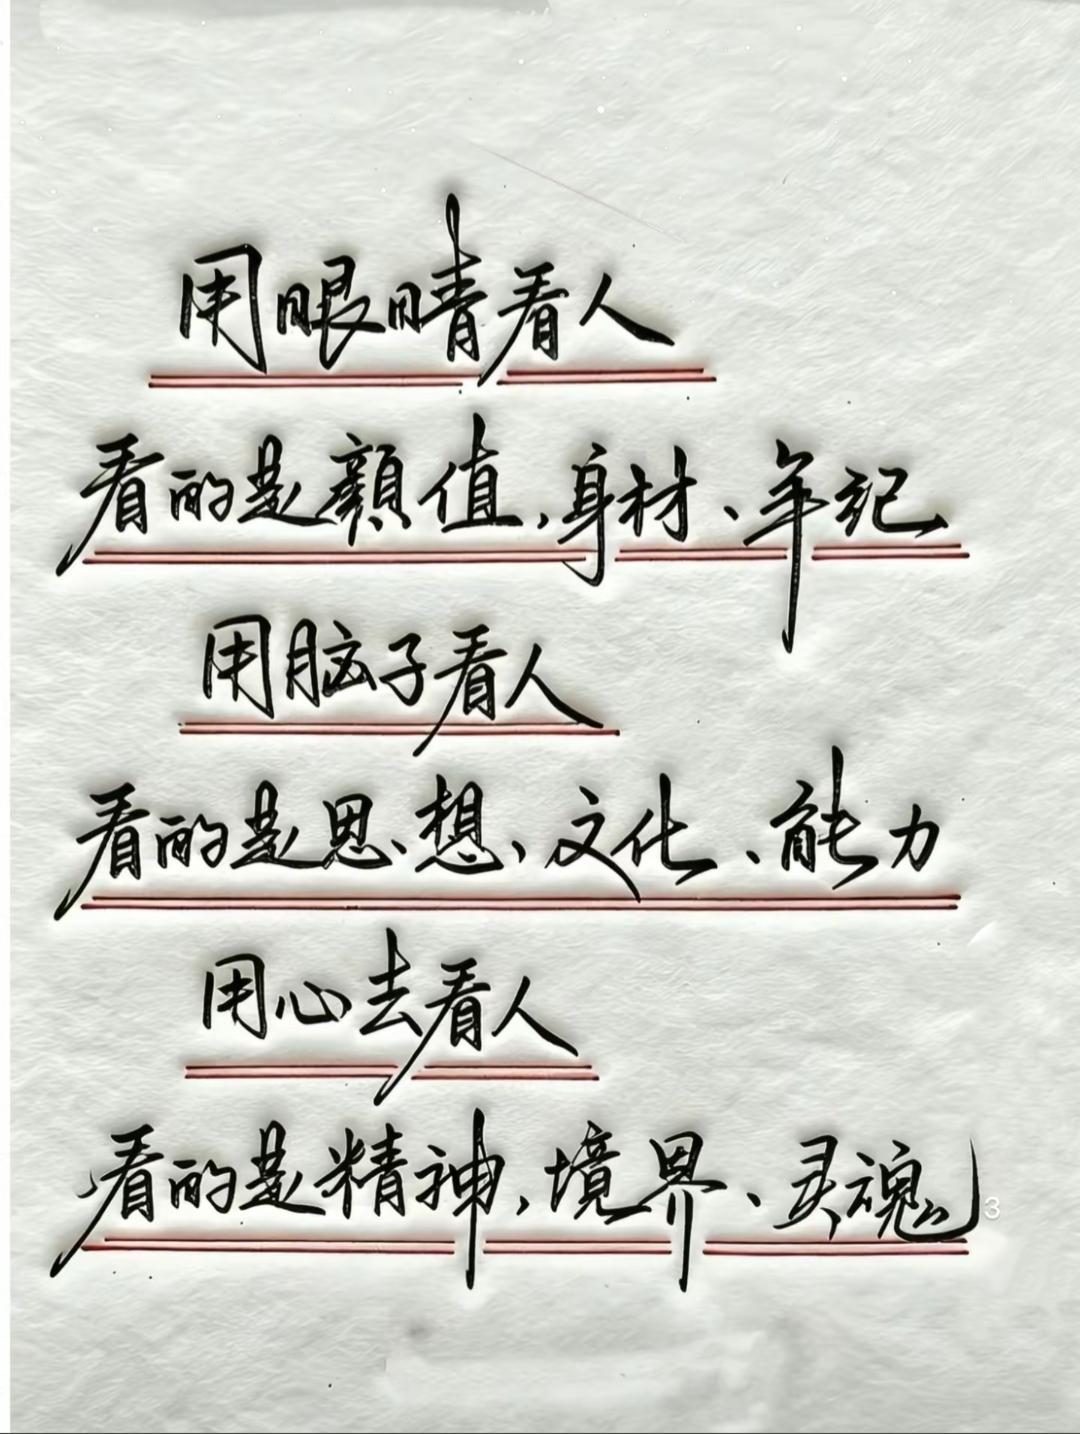 用眼睛看人
看的是颜值、身材、年纪
用脑子看人
看的是思想、文化、能力
用心去看人
看的是精神、境界、灵魂
3